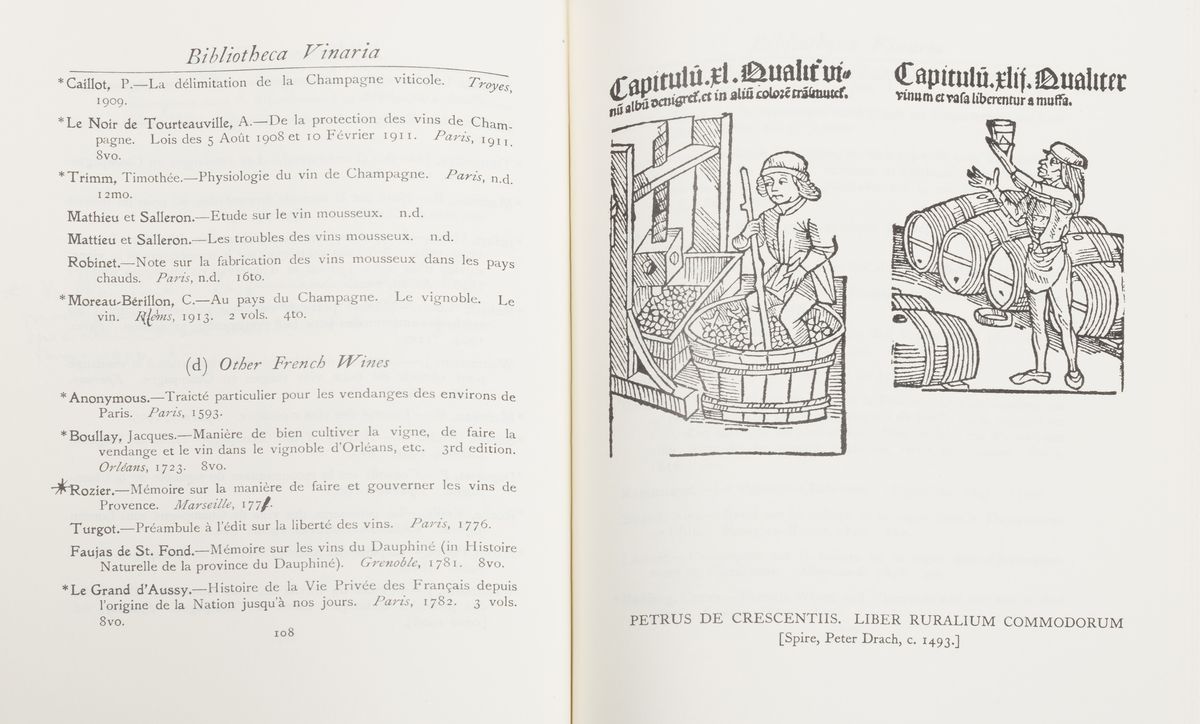 Bibliotheca Vinaria
*Caillot, P.—La délimitation de la Champagne viticole. Troyes,
1909.
*Le Noir de Tourteauville, A.—De la protection des vins de Cham-
pagne. Lois des 5 Août 1908 et 10 Février 1911. Paris, 1911.
8vo.
*Trimm, Timothée.—Physiologie du vin de Champagne. Paris, n.d.
12mo.
Mathieu et Salleron.—Etude sur le vin mousseux. n.d.
Mattieu et Salleron.—Les troubles des vins mousseux. n.d.
Robinet.—Note sur la fabrication des vins mousseux dans les pays
chauds. Paris, n.d. 16to.
*Moreau-Bérillon, C.—Au pays du Champagne. Le vignoble. Le
vin. 1913. 2 vols. 4to.
(d) Other French Wines
*Anonymous.—Traicté particulier pour les vendanges des environs de
Paris. Paris, 1593.
*Boullay, Jacques.—Manière de bien cultiver la vigne, de faire la
vendange et le vin dans le vignoble d'Orléans, etc. 3rd edition.
Orléans, 1723. 8vo.
*Rozier.—Mémoire sur la manière de faire et gouverner les vins de
Provence. Marseille,
Turgot.—Préambule à l'édit sur la liberté des vins. Paris, 1776.
Faujas de St. Fond.—Mémoire sur les vins du Dauphiné (in Histoire
Naturelle de la province du Dauphiné). Grenoble, 1781. 8vo.
*Le Grand d'Aussy.—Histoire de la Vie Privée des Français depuis
l'origine de la Nation jusqu'à nos jours. Paris, 1782. 3 vols.
8vo.
108
Capitulū.xl. Qualit' vi⸗
nū albū denigret'. et in aliū colorē trāsmutet'.
Capitulū.xlij. Qualiter
vinum et vasa liberentur a muffa.
PETRUS DE CRESCENTIIS. LIBER RURALIUM COMMODORUM
[Spire, Peter Drach, c. 1493.]